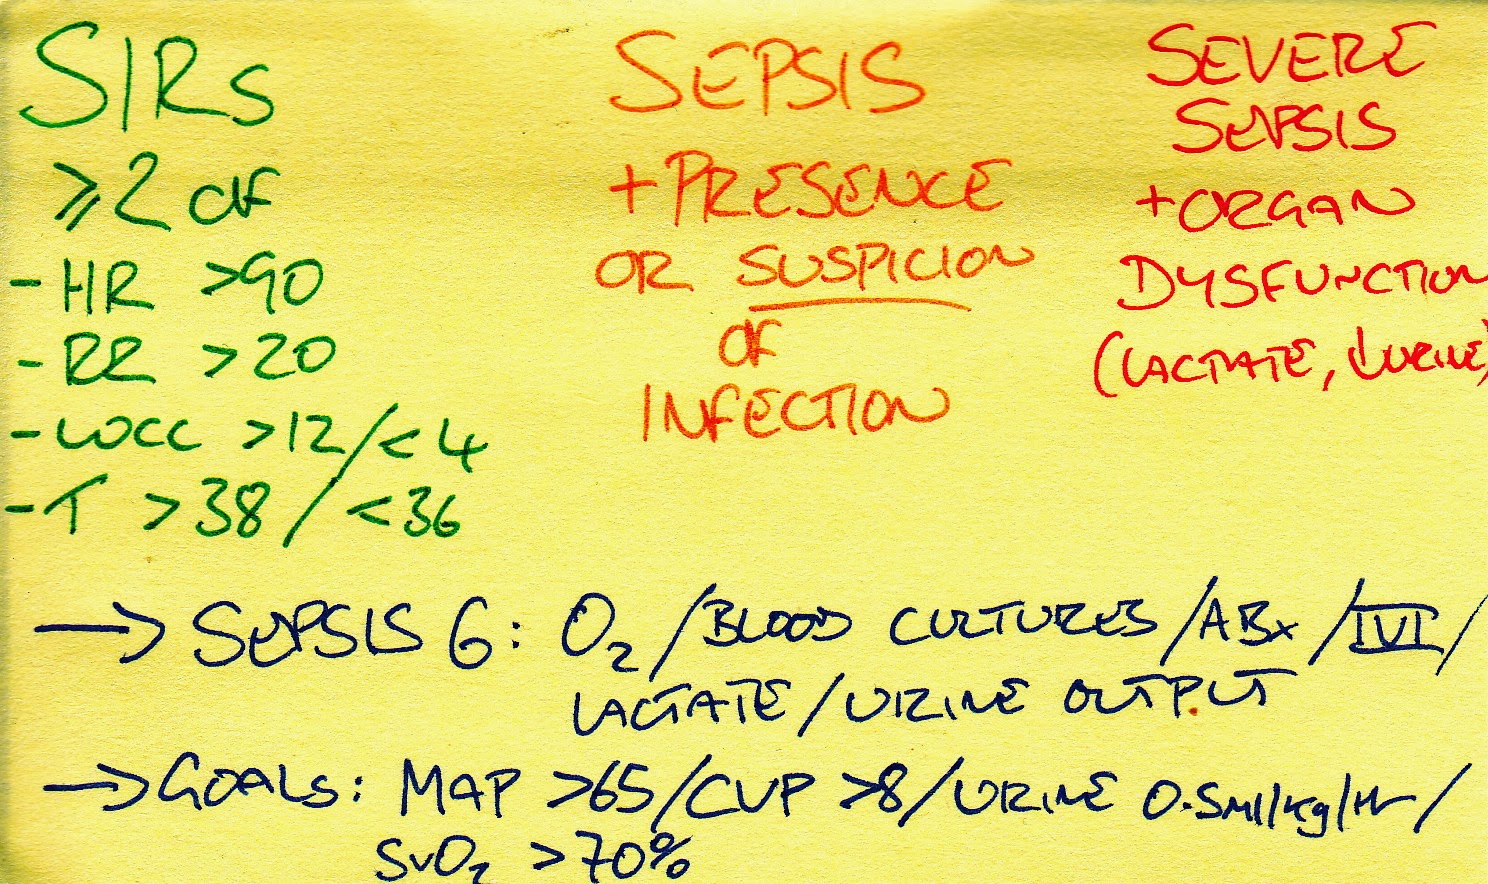 SIRs
≥2 of
- HR >90
- RR >20
- WCC >12/<4
- T >38/<36
SEPSIS
+PRESENCE
OR SUSPICION
OF
INFECTION
SEVERE
SEPSIS
+ORGAN
DYSFUNCTION
(LACTATE, ↓URINE)
→ SEPSIS 6: O₂/BLOOD CULTURES/ABx/IVI/
LACTATE/URINE OUTPUT
→ GOALS: MAP >65/CVP >8/URINE 0.5ml/kg/Hr/
SvO₂ >70%